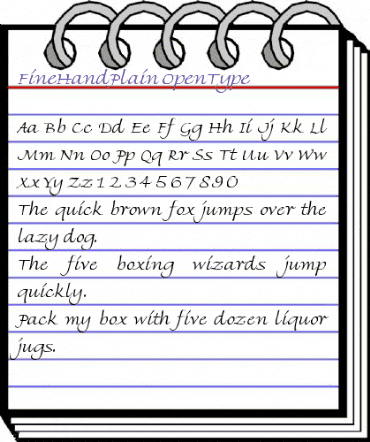 FineHandPlain OpenType
Aa Bb Cc Dd Ee Ff Gg Hh Ii Jj Kk Ll
Mm Nn Oo Pp Qq Rr Ss Tt Uu Vv Ww
Xx Yy Zz 1 2 3 4 5 6 7 8 9 0
The quick brown fox jumps over the
lazy dog.
The five boxing wizards jump
quickly.
Pack my box with five dozen liquor
jugs.